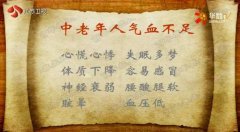 江苏卫视
华数
中老年人气血不足
心慌心悸 失眠多梦
体质下降 容易感冒
神经衰弱 腰酸腿软
眩晕 血压低